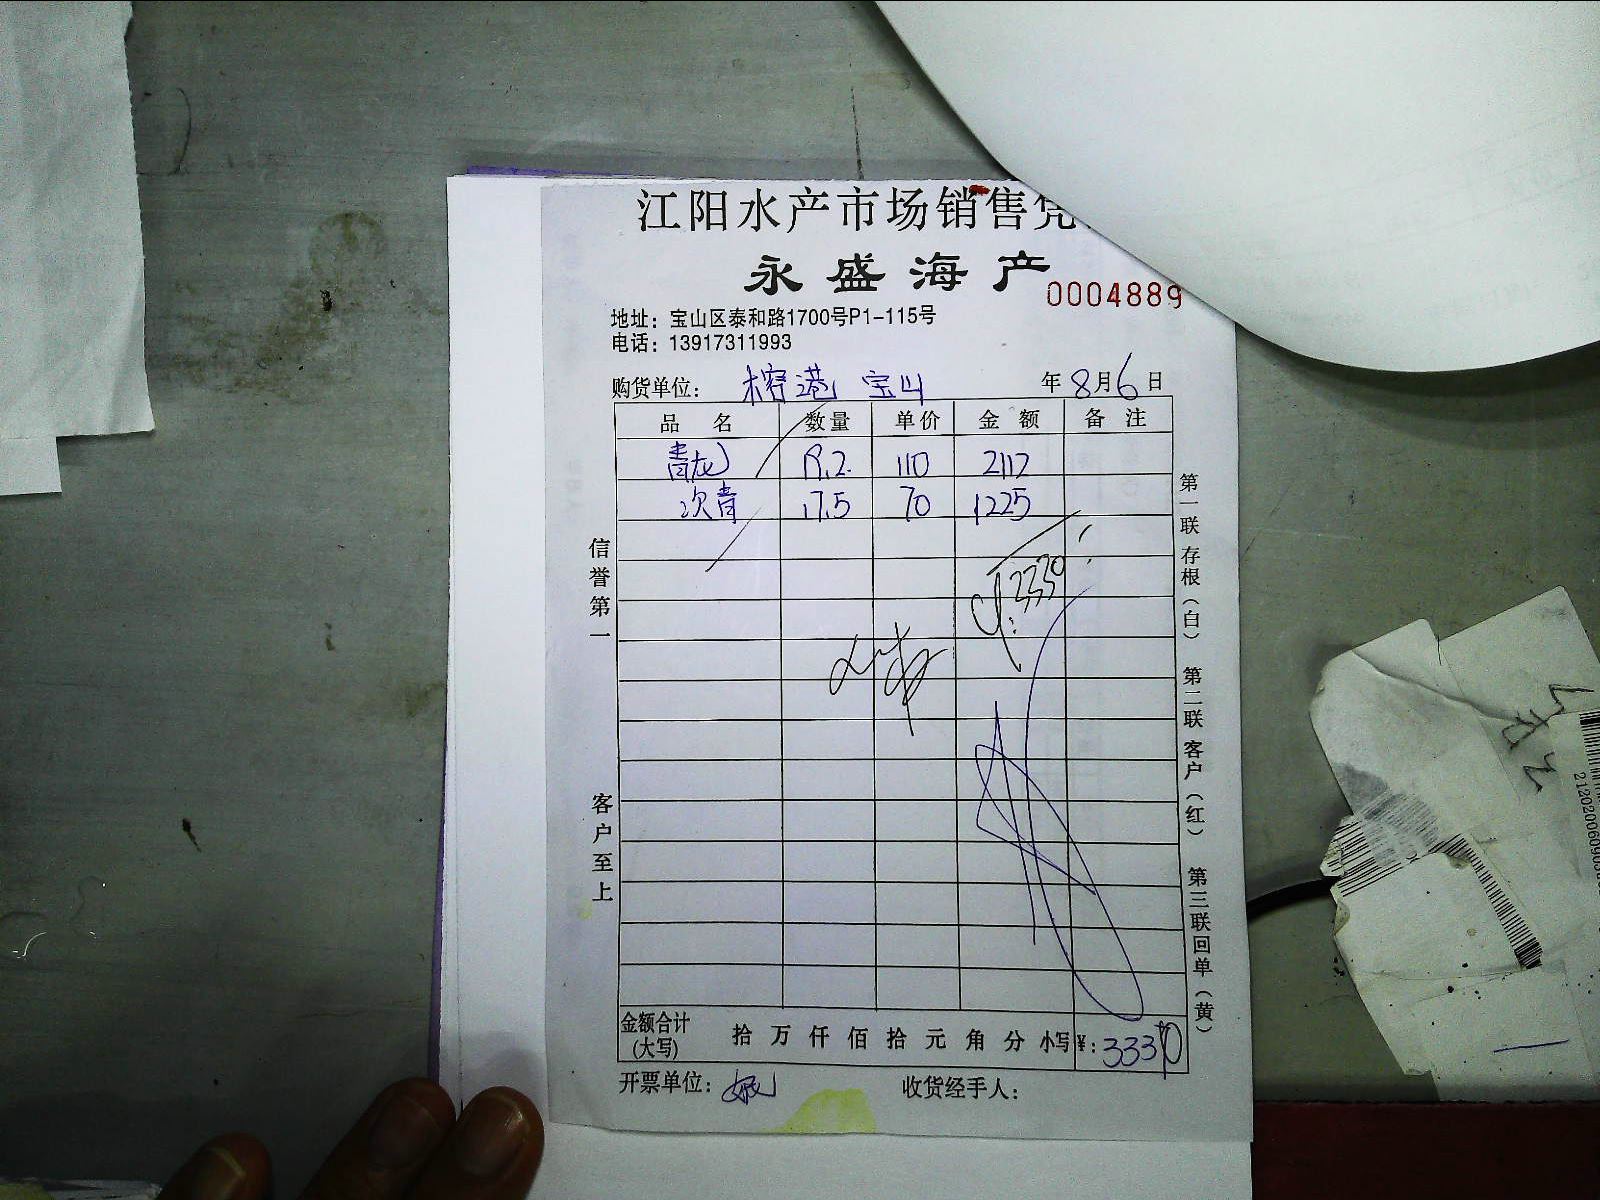 江阳水产市场销售凭
永盛海产
0004889
地址：宝山区泰和路1700号P1-115号
电话：13917311993
购货单位：榕港 宝山 年8月6日
品名 数量 单价 金额 备注
青龙 19.2 110 2112
次青 17.5 70 1225
3330
信誉第一
客户至上
第一联存根（白）
第二联客户（红）
第三联回单（黄）
金额合计(大写) 拾万仟佰拾元角分 小写¥：3330
开票单位：
收货经手人：